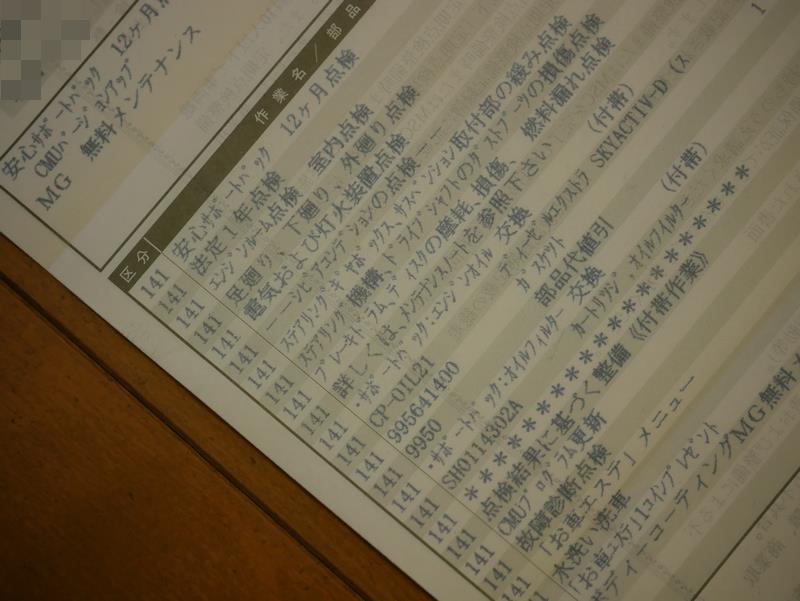 安心サポートパック 12ヶ月点
CMUバージョンアップ
MG 無料メンテナンス
区分 作業名／部品
141 安心サポートパック 12ヶ月点検
141 法定1年点検
141 エンジンルーム点検 室内点検
141 足廻り、下廻り、外廻り点検
141 電気および灯火装置点検
141 ーーシビアコンディションの点検ーー
141 ステアリングギヤボックス、サスペンション取付部の緩み点検
141 ステアリング機構、ドライブシャフトのダストブーツの損傷点検
141 ブレーキドラム、ディスクの摩耗、損傷、燃料漏れ点検
141 詳しくは、メンテナンスノートを参照下さい
141 ・サポートパック・エンジンオイル 交換 (付帯)
141 CP-OIL21 ディーゼルエクストラ SKYACTIV-D (ス
141 995641400 ガスケット 1
141 9950 部品代値引
141 ・サポートパック・オイルフィルター 交換 (付帯)
141 SH0114302A カートリッジ オイルフィルター
141 ********************
141 点検結果に基づく整備 《付帯作業》
141 CMUプログラム更新
141 故障診断点検
141 「お車エステ」メニュー
141 水洗い洗車
「お車エステ」1コインプレゼント
ボディーコーティングMG無料メ